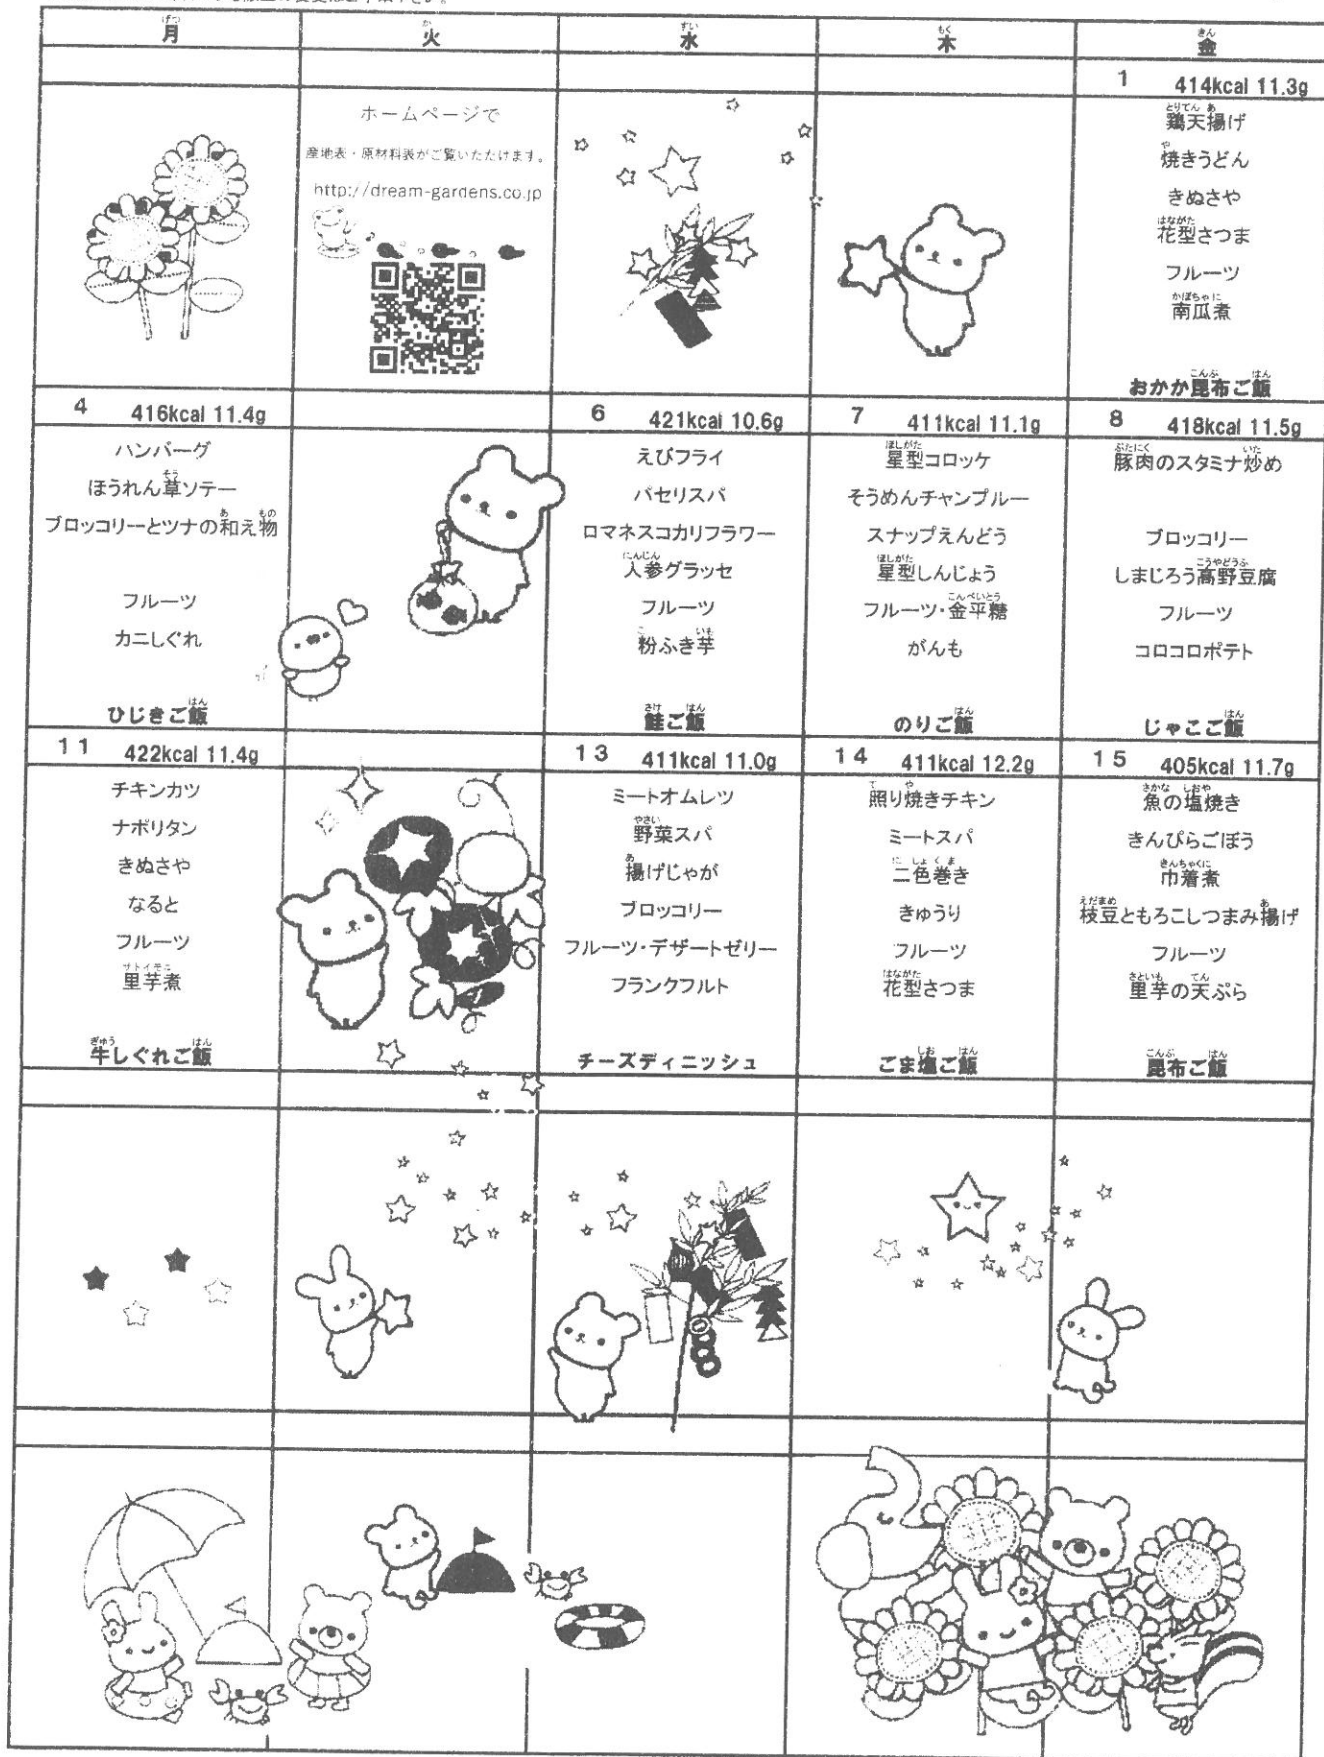 月
火
水
木
金
1 414kcal 11.3g
ホームページで
産地表・原材料表がご覧いただけます。
http://dream-gardens.co.jp
鶏天揚げ
焼きうどん
きぬさや
花型さつま
フルーツ
南瓜煮
おかか昆布ご飯
4 416kcal 11.4g
ハンバーグ
ほうれん草ソテー
ブロッコリーとツナの和え物
フルーツ
カニしぐれ
ひじきご飯
6 421kcal 10.6g
えびフライ
パセリスパ
ロマネスコカリフラワー
人参グラッセ
フルーツ
粉ふき芋
鮭ご飯
7 411kcal 11.1g
星型コロッケ
そうめんチャンプルー
スナップえんどう
星型しんじょう
フルーツ・金平糖
がんも
のりご飯
8 418kcal 11.5g
豚肉のスタミナ炒め
ブロッコリー
しまじろう高野豆腐
フルーツ
コロコロポテト
じゃこご飯
11 422kcal 11.4g
チキンカツ
ナポリタン
きぬさや
なると
フルーツ
里芋煮
牛しぐれご飯
13 411kcal 11.0g
ミートオムレツ
野菜スパ
揚げじゃが
ブロッコリー
フルーツ・デザートゼリー
フランクフルト
チーズディニッシュ
14 411kcal 12.2g
照り焼きチキン
ミートスパ
二色巻き
きゅうり
フルーツ
花型さつま
ごま塩ご飯
15 405kcal 11.7g
魚の塩焼き
きんぴらごぼう
巾着煮
枝豆ともろこしつまみ揚げ
フルーツ
里芋の天ぷら
昆布ご飯